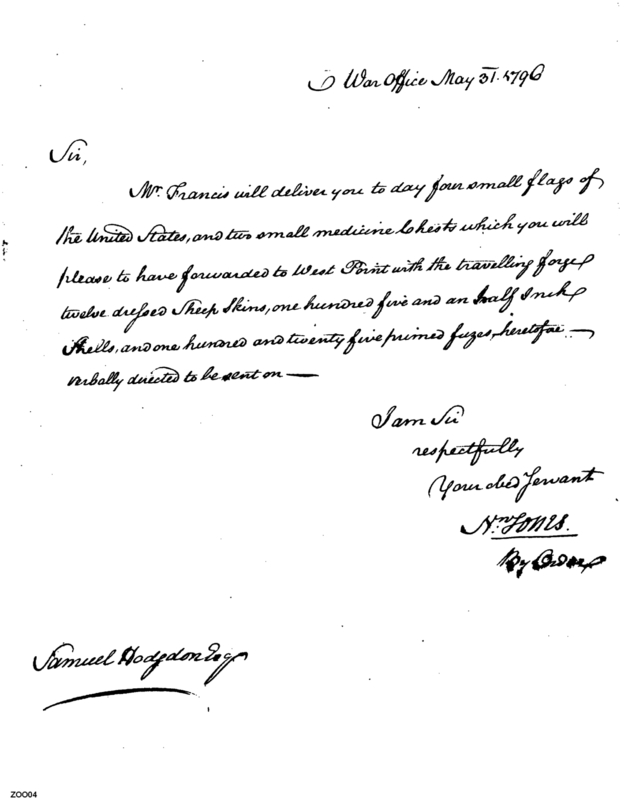 War Office May 31. 1796
Sir,
Mr. Francis will deliver you to day four small flags of
the United States, and two small medicine Chests which you will
please to have forwarded to West Point with the travelling forge
twelve dressed Sheep Skins, one hundred five and an half Inch
Shells, and one hundred and twenty five primed fuzes, heretofore —
verbally directed to be sent on —
I am Sir
respectfully
Your obed Servant
Wm Jones.
By Order
Samuel Hodgdon Esqr
ZOO04